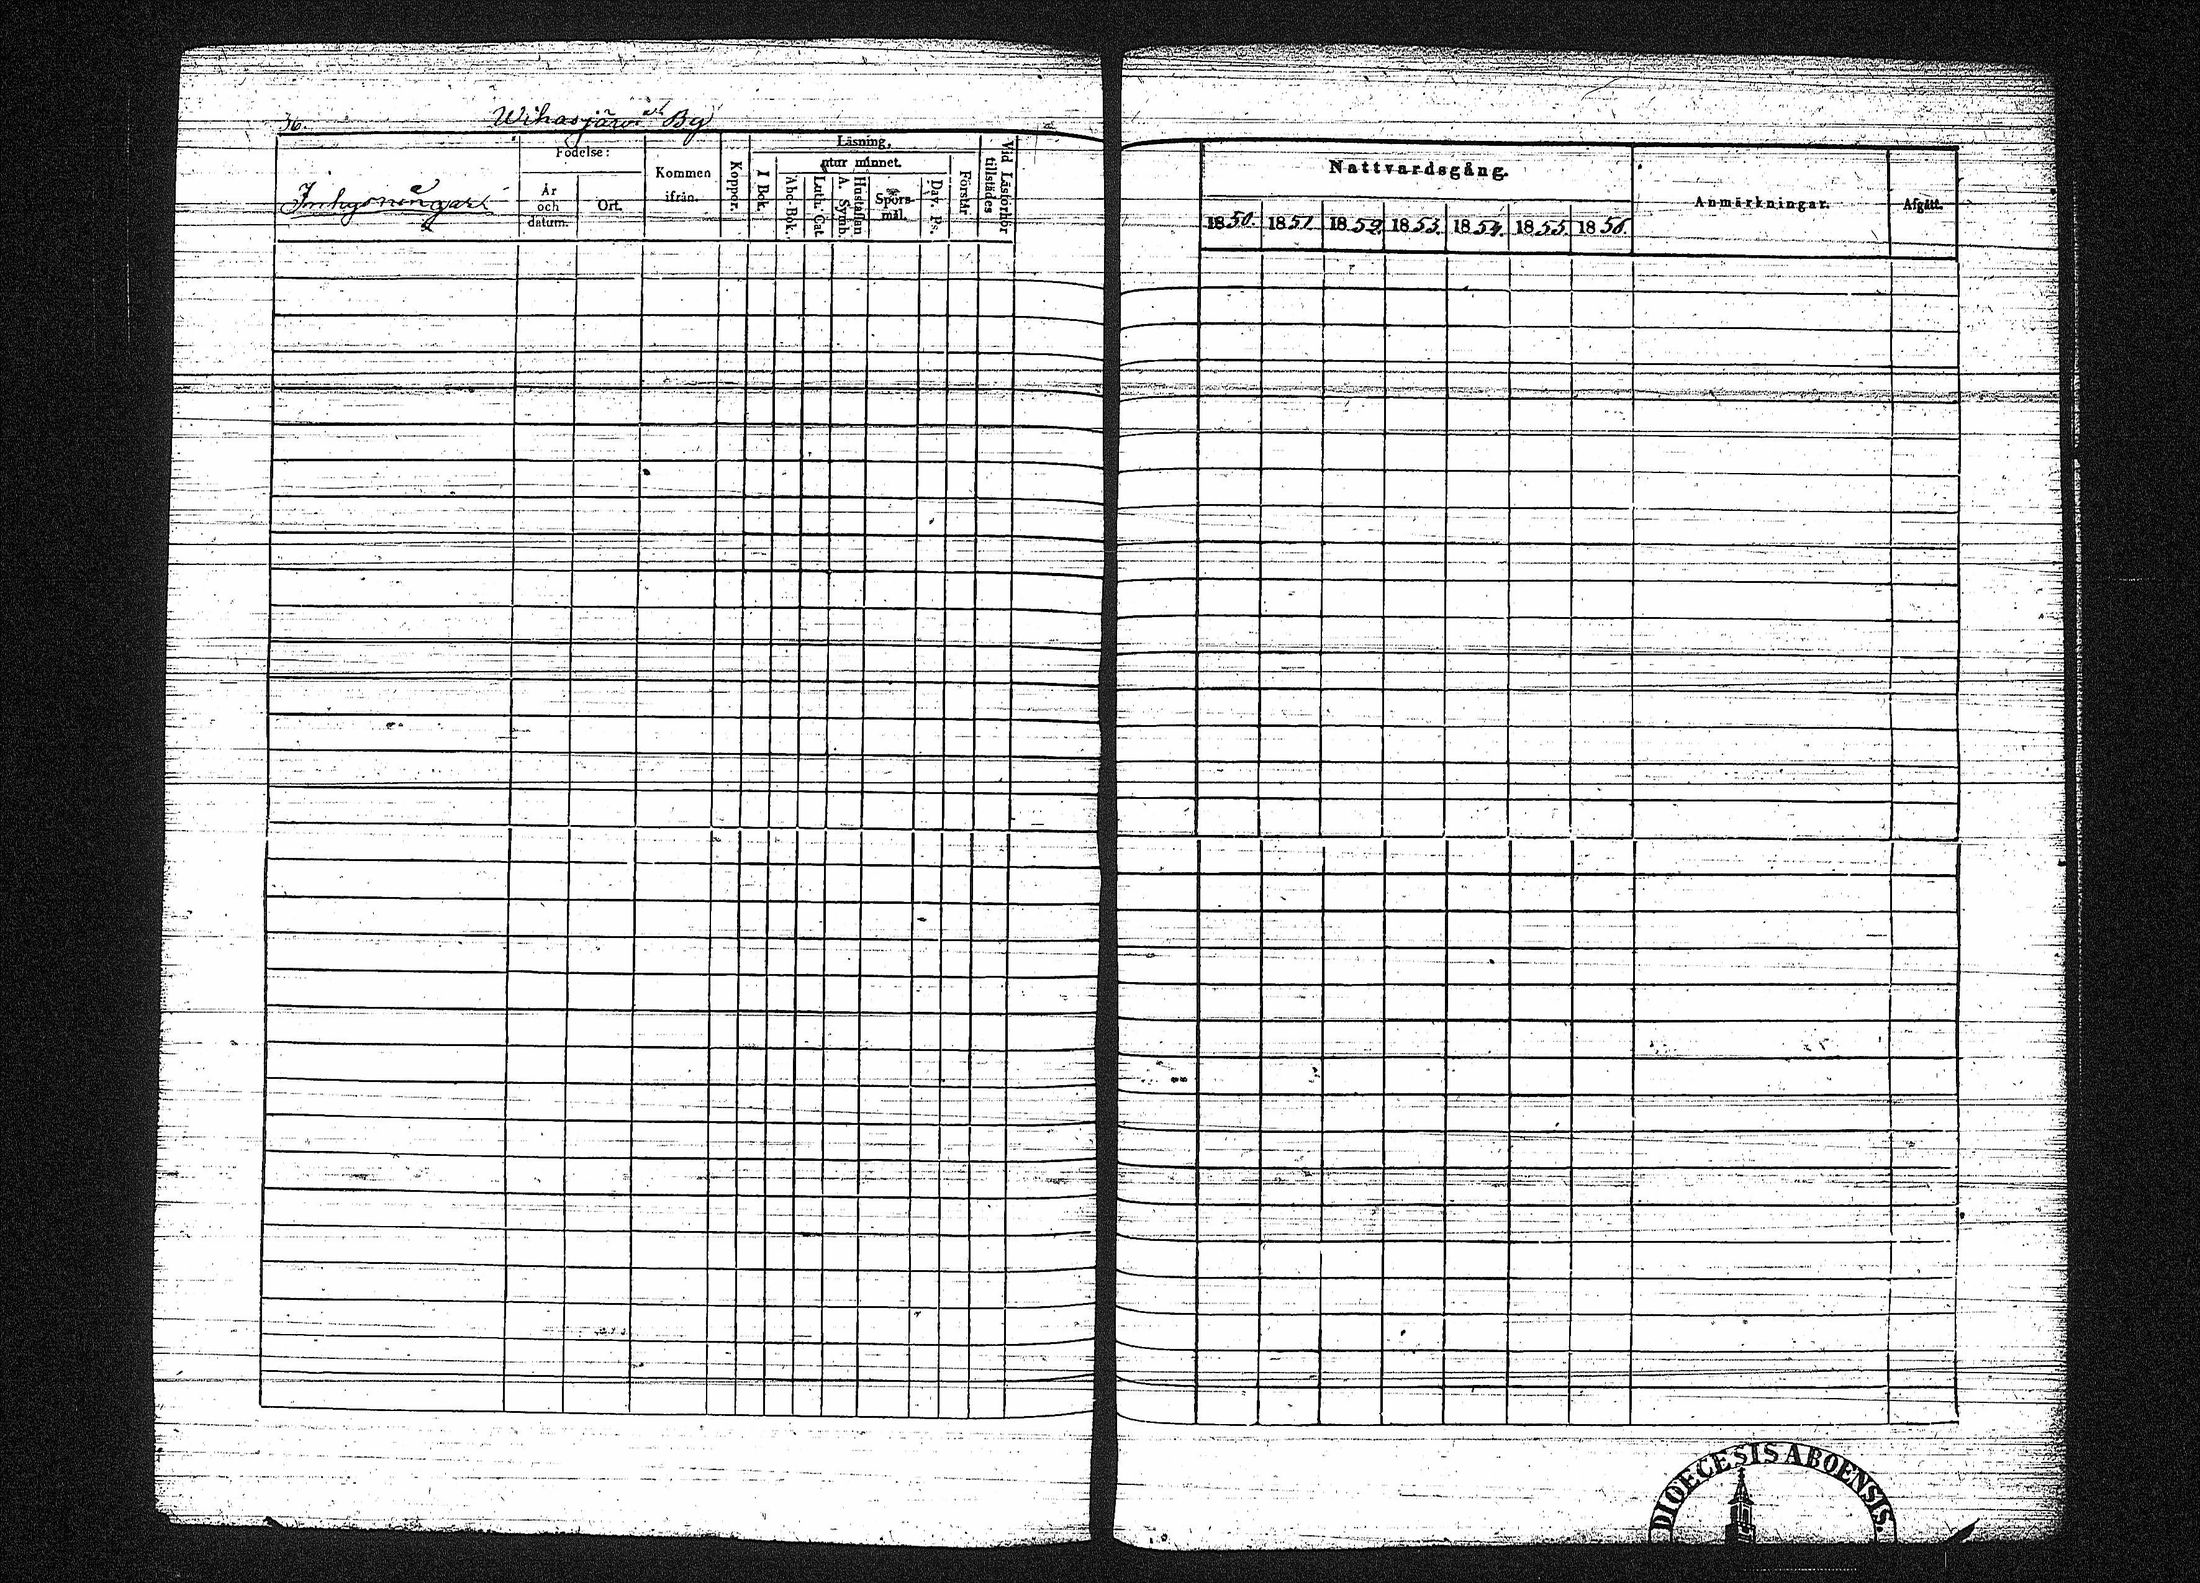 36.
Wihasjärvi By
Inhysningar
Födelse:
År
och
datum.
Ort.
Kommen
ifrån.
Koppor.
Läsning,
utur minnet.
I Bok.
Abc-Bok.
Luth. Cat.
Hustaflan
A. Symb.
Spörs-
mål.
Dav. Ps.
Förstår
Vid Läsförhör
tillstädes
Nattvardsgång.
1850. 1851 1852. 1853. 1854. 1855. 1856.
Anmärkningar.
Afgått.
DIOECESIS ABOENSIS.